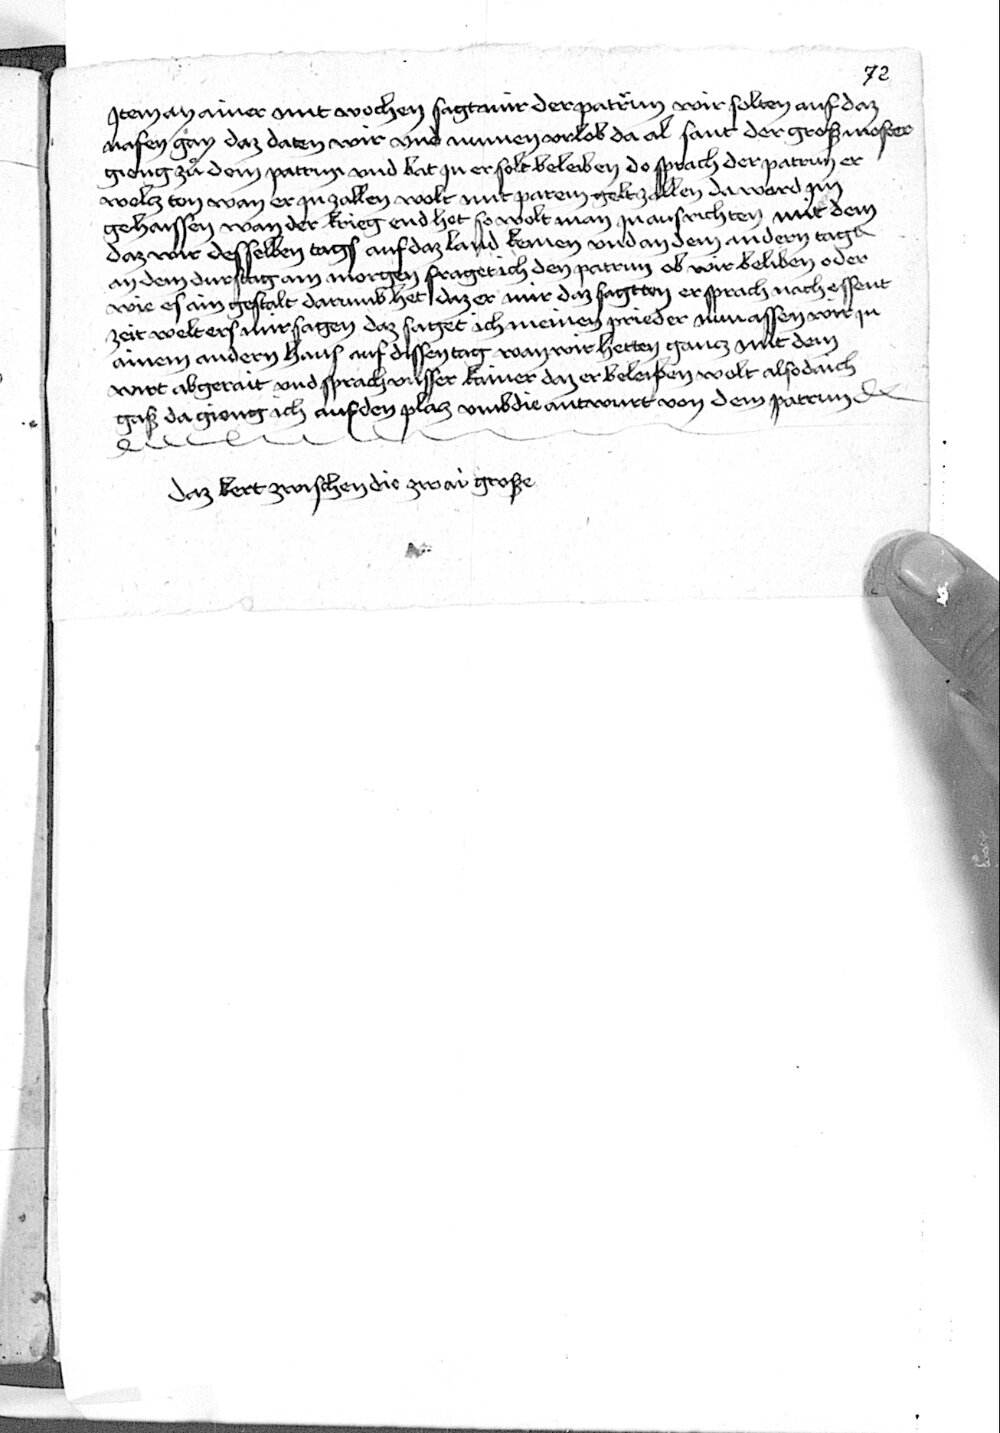 72
Item an ainer mit wochen sagt mir der patrŭn wir solten auf daz
nafen gan daz daten wir und numen vrlob da al sant der groß moster
gieng zů dem patrun und bat in er solt beleiben do sprach der patrun er
welcz ton wan er in zallen wolt mit parem gelt zallen da ward im
gehaissen wan der krieg end het so wolt man in ausrichten mit dem
daz wir desselben tachs auf daz land kemen und an dem andern tagt
an dem durstag am morgen fraget ich den patrun ob wir beliben oder
wie es ain gestalt darumb het daz er mir daz sagtten er sprach nach essent
zeit welt ers mir sagen daz saget ich meinen prieder nun assen wir in
ainem andern haus auf dissen tag wan wir hetten gancz mit dem
wirt abgerait und sprach vnsser kainer daz er beleiben wolt also da ich
gaß da gieng ich auf den placz vmb die antwurt von dem patrun
daz kert zwischen die zwai große